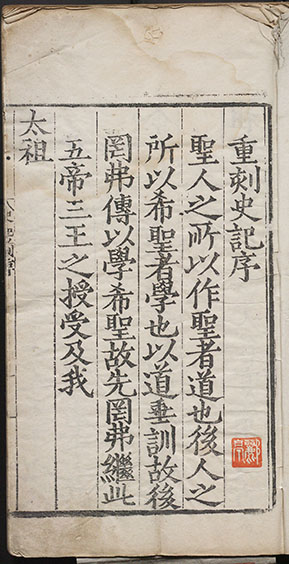 重刻史記序
聖人之所以作聖者道也後人之
所以希聖者學也以道垂訓故後
罔弗傳以學希聖故先罔弗繼此
五帝三王之授受及我
太祖